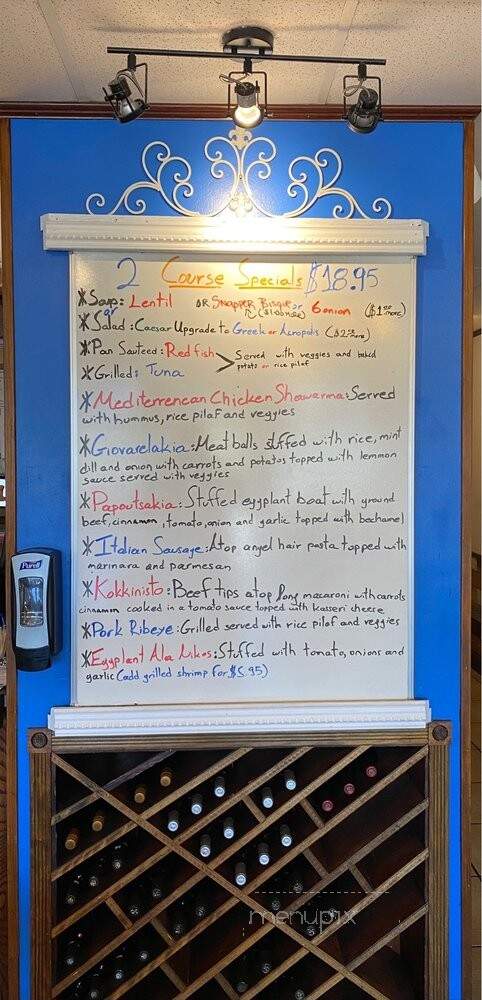 2 Course Specials $18.95
*Soup: Lentil OR Snapper Bisque or 6 onion ($1.00 more)
or ($1.00 more)
*Salad: Caesar Upgrade to Greek or Acropolis ($2.00 more)
*Pan Sauteed: Redfish > Served with veggies and baked
potato or rice pilaf
*Grilled: Tuna
*Mediterrenean Chicken Shawarma: Served
with hummus, rice pilaf and veggies
*Giovarelakia: Meatballs stuffed with rice, mint
dill and onion with carrots and potatos topped with lemmon
sauce served with veggies
*Papoutsakia: Stuffed eggplant boat with ground
beef, cinnamon, tomato, onion and garlic topped with bechamel
*Italian Sausage: Atop angel hair pasta topped with
marinara and parmesan
*Kokkinisto: Beef tips atop long macaroni with carrots
cinnamon cooked in a tomato sauce topped with kasseri cheese
*Pork Ribeye: Grilled served with rice pilaf and veggies
*Eggplant Ala Nikos: Stuffed with tomato, onions and
garlic (add grilled shrimp for $5.95)
Purell
menupix